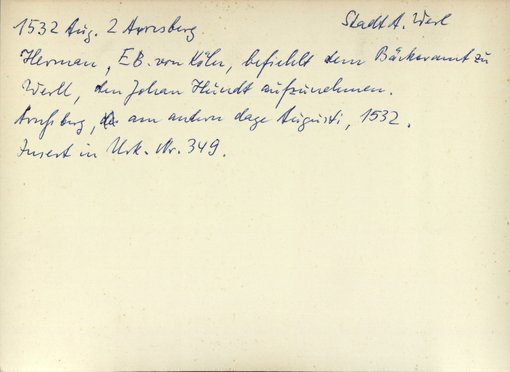 1532 Aug. 2 Arnsberg Stadt A. Werl
Herman, E.B. von Köln, befiehlt dem Bäckeramt zu
Werll, den Johan Hundt aufzunehmen.
Arnßberg, am antern dage Augusti, 1532.
Insert in Urk. Nr. 349.